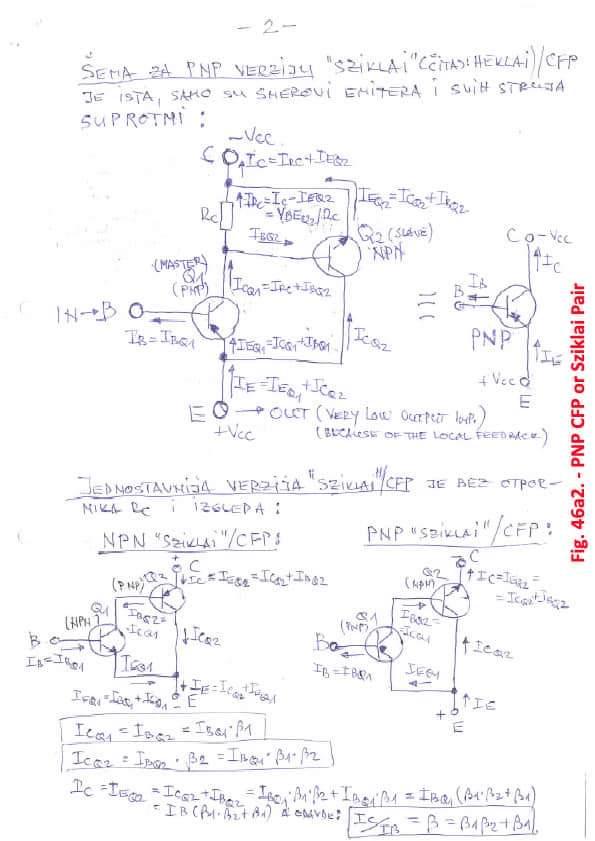 - 2 -
ŠEMA ZA PNP VERZIJU "SZIKLAI" (ČITAJ: HEKLAI)/CFP
JE ISTA, SAMO SU SMEROVI EMITERA I SVIH STRUJA
SUPROTNI:
-Vcc
C
IC=IRC+IEQ2
IRC=IC-IEQ2
=VBEQ2/RC
RC
IEQ2=ICQ2+IBQ2
IBQ2
Q2 (SLAVE)
NPN
(MASTER)
Q1
(PNP)
ICQ1=IRC+IBQ2
IN→B
IB=IBQ1
IEQ1=ICQ1+IBQ1
ICQ2
IE=IEQ1+ICQ2
E
→ OUT (VERY LOW OUTPUT IMP.)
+Vcc
(BECAUSE OF THE LOCAL FEEDBACK)
=
C -Vcc
IC
IB
B
PNP
IE
+Vcc
E
JEDNOSTAVNIJA VERZIJA "SZIKLAI"/CFP JE BEZ OTPOR-
NIKA RC I IZGLEDA:
NPN "SZIKLAI"/CFP:
+ C
Q2
(PNP)
IC=IEQ2=ICQ2+IBQ2
Q1
(NPN)
IBQ2=
=ICQ1
B
IB=IBQ1
ICQ2
IEQ1
IEQ1=IBQ1+ICQ1
IE=ICQ2+IEQ1
- E
PNP "SZIKLAI"/CFP:
- C
Q2
(NPN)
IC=IEQ2=
=ICQ2+IBQ2
Q1
(PNP)
IBQ2=
=ICQ1
B
IB=IBQ1
ICQ2
IEQ1
IE
+
E
ICQ1 = IBQ2 = IBQ1·β1
ICQ2 = IBQ2·β2 = IBQ1·β1·β2
IC = IEQ2 = ICQ2+IBQ2 = IBQ1·β1·β2+IBQ1·β1 = IBQ1(β1·β2+β1)
= IB(β1·β2+β1) A ODAVDE: IC/IB = β = β1β2+β1
Fig. 46a2. - PNP CFP or Sziklai Pair